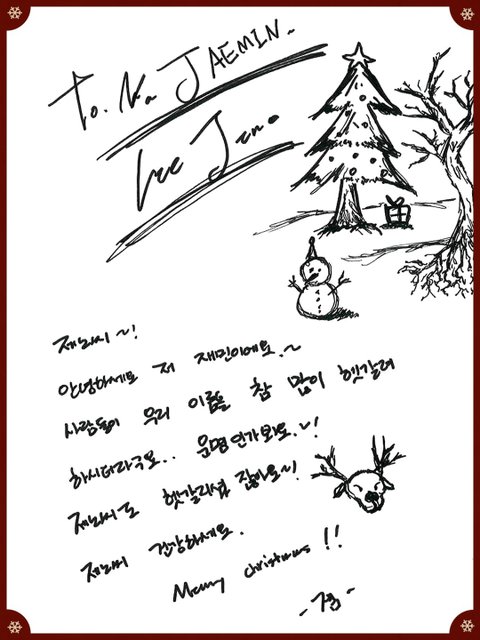 To. Na JAEMIN.
Lee Jeno
제노씨~!
안녕하세요 저 재민이에요.~
사람들이 우리 이름을 참 많이 헷갈려
하시더라구요.. 운명인가봐요.~!
제노씨도 헷갈리셨 잖아요~!
제노씨 건강하세요.
Merry christmas !!